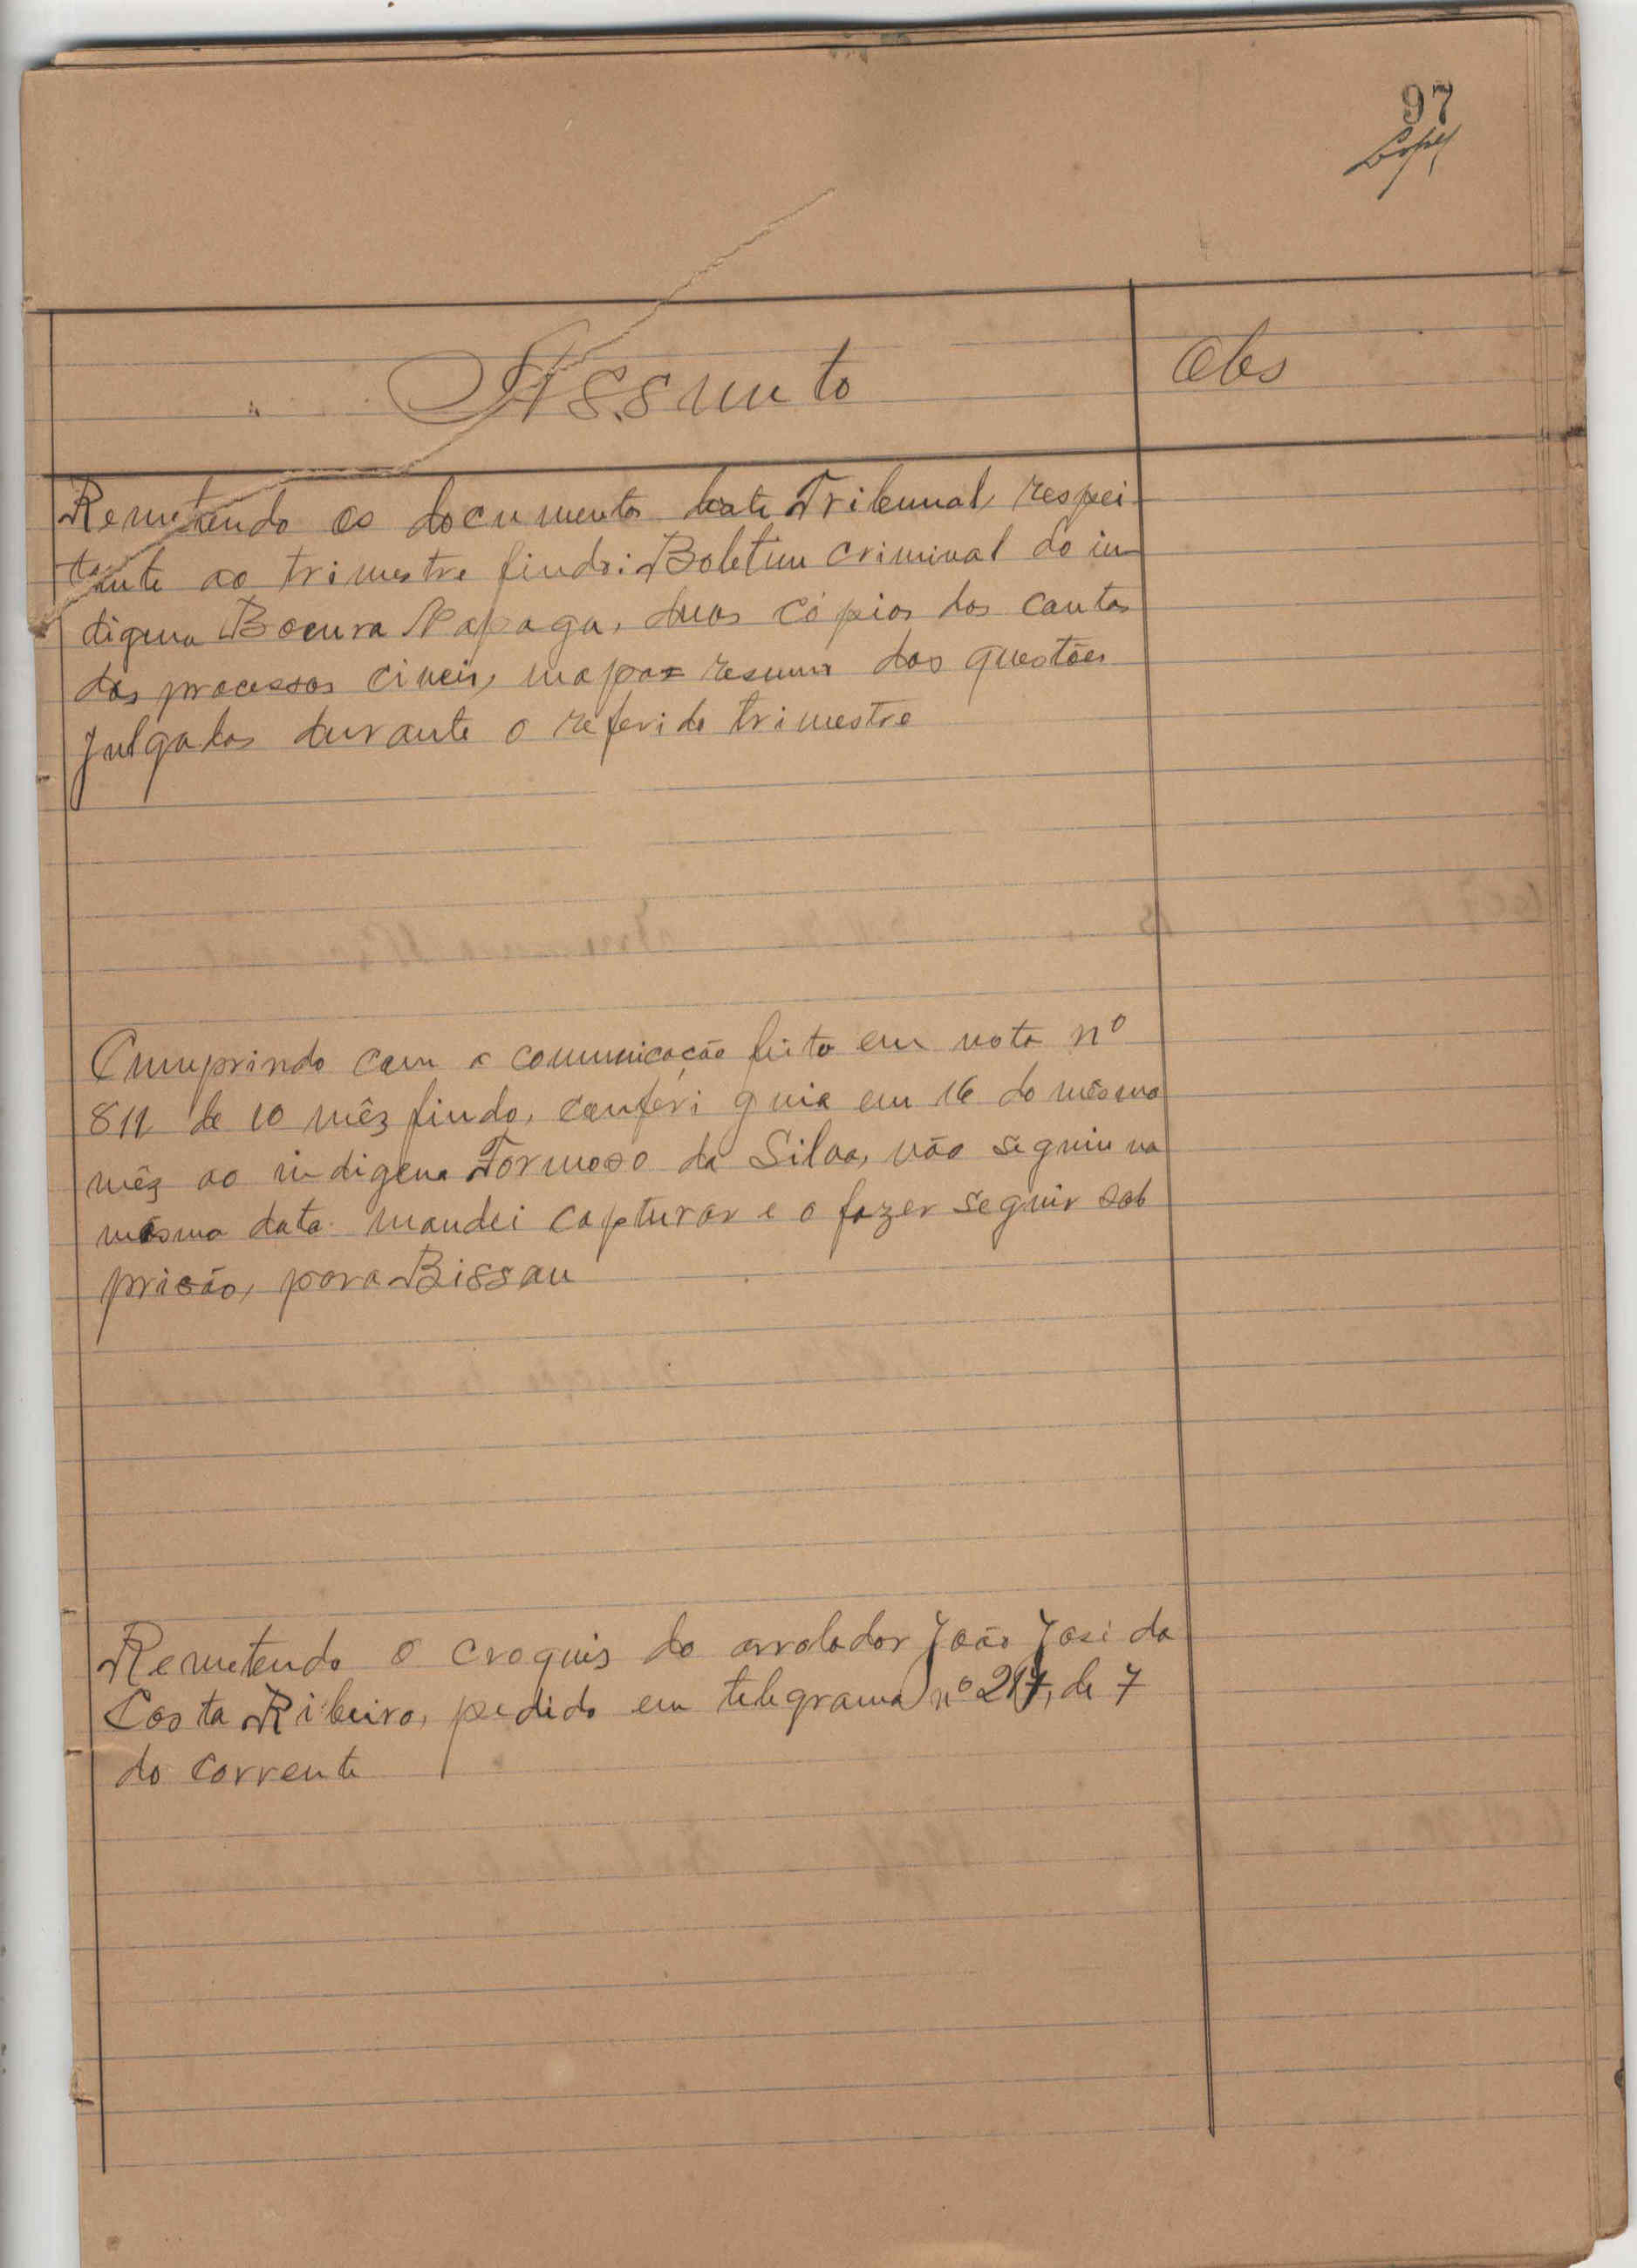 97
Assunto
Obs
Remetendo os documentos deste Tribunal, respei-
tante ao trimestre findo: Boletim criminal do in-
digena Bocura Napaga, duas cópias das contas
dos processos civeis, mapas resumo das questões
julgadas durante o referido trimestre
Cumprindo com a comunicação feita em nota nº
811 de 10 mês findo, conferi guia em 16 do mesmo
mês ao indigena Formoso da Silva, não seguiu na
mesma data. mandei capturar e o fazer seguir sob
prisão, para Bissau
Remetendo o croquis do arrolador João José da
Costa Ribeiro, pedido em telegrama nº 217, de 7
do corrente